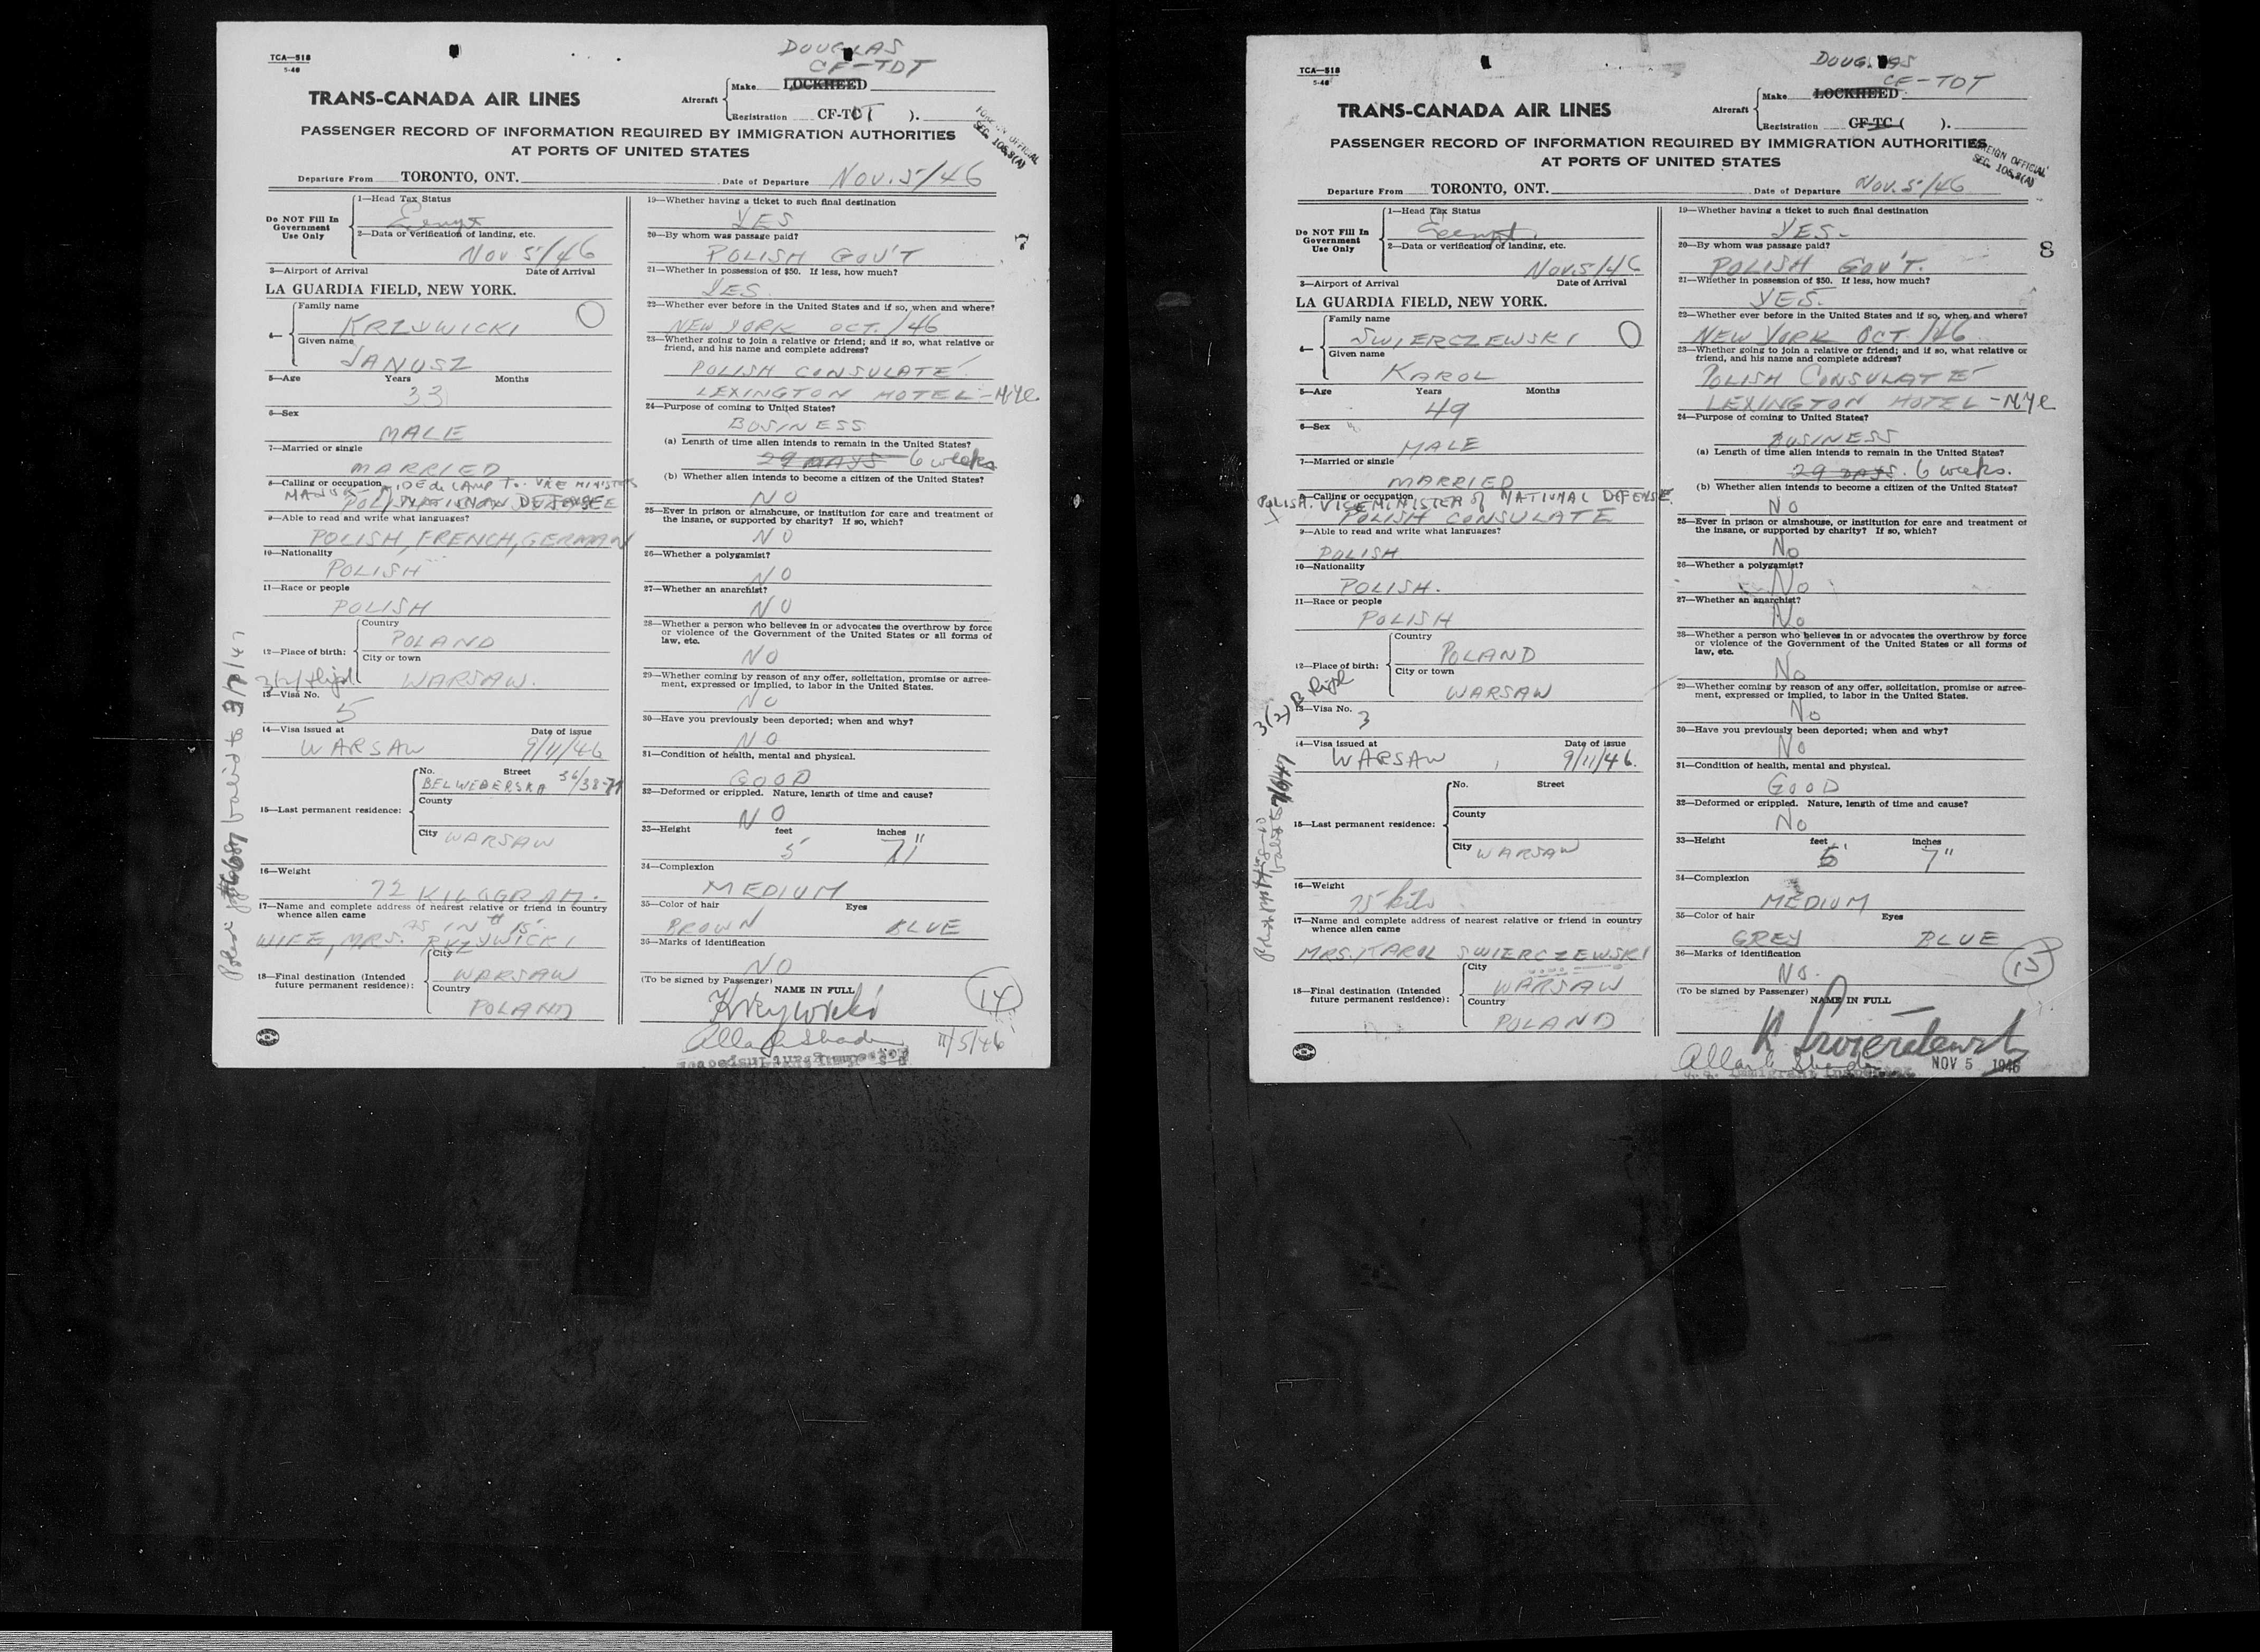 TCA—518
5-46
DOUGLAS
CF-TDT
TRANS-CANADA AIR LINES
Aircraft
Make LOCKHEED
Registration CF-TC( ).
FOREIGN OFFICIAL
SEC. 105.3(A)
PASSENGER RECORD OF INFORMATION REQUIRED BY IMMIGRATION AUTHORITIES
AT PORTS OF UNITED STATES
Departure From TORONTO, ONT. Date of Departure NOV. 5/46
Do NOT Fill In
Government
Use Only
1—Head Tax Status
Exempt
2—Data or verification of landing, etc.
NOV 5/46
3—Airport of Arrival Date of Arrival
LA GUARDIA FIELD, NEW YORK.
4—
Family name
KRZYWICKI
Given name
JANUSZ
5—Age Years Months
33
6—Sex
MALE
7—Married or single
MARRIED
8—Calling or occupation AIDE de CAMP To VICE MINISTER
NATIONAL DEFENSE
9—Able to read and write what languages?
POLISH, FRENCH, GERMAN
10—Nationality
POLISH
11—Race or people
POLISH
12—Place of birth:
Country
POLAND
City or town
WARSAW.
3(2) dipl
13—Visa No.
5
14—Visa issued at Date of issue
WARSAW 9/11/46
15—Last permanent residence:
No. Street
BELWEDERSKA 36/38-
County
City WARSAW
16—Weight
72 KILOGRAM.
17—Name and complete address of nearest relative or friend in country
whence alien came
AS IN # 15.
WIFE, MRS. KRZYWICKI
18—Final destination (Intended
future permanent residence):
City
WARSAW
Country
POLAND
valid to 3/9/47
19—Whether having a ticket to such final destination
YES
20—By whom was passage paid?
POLISH GOV'T
21—Whether in possession of $50. If less, how much?
YES.
22—Whether ever before in the United States and if so, when and where?
NEW YORK OCT. /46
23—Whether going to join a relative or friend; and if so, what relative or
friend, and his name and complete address?
POLISH CONSULATE
LEXINGTON HOTEL - NYC
24—Purpose of coming to United States?
BUSINESS
(a) Length of time alien intends to remain in the United States?
29 DAYS 6 weeks
(b) Whether alien intends to become a citizen of the United States?
NO
25—Ever in prison or almshouse, or institution for care and treatment of
the insane, or supported by charity? If so, which?
NO
26—Whether a polygamist?
NO
27—Whether an anarchist?
NO
28—Whether a person who believes in or advocates the overthrow by force
or violence of the Government of the United States or all forms of
law, etc.
NO
29—Whether coming by reason of any offer, solicitation, promise or agree-
ment, expressed or implied, to labor in the United States.
NO
30—Have you previously been deported; when and why?
NO
31—Condition of health, mental and physical.
GOOD
32—Deformed or crippled. Nature, length of time and cause?
NO
33—Height feet inches
5 7"
34—Complexion
MEDIUM
35—Color of hair Eyes
BROWN BLUE
36—Marks of identification
NO
(To be signed by Passenger)
NAME IN FULL
Krzywicki
14
11/5/46
U.S. Immigrant Inspector
TCA—518
5-46
DOUGLAS
CF-TDT
TRANS-CANADA AIR LINES
Aircraft
Make LOCKHEED
Registration CF-TC ( ).
FOREIGN OFFICIAL
SEC. 105.3(A)
PASSENGER RECORD OF INFORMATION REQUIRED BY IMMIGRATION AUTHORITIES
AT PORTS OF UNITED STATES
Departure From TORONTO, ONT. Date of Departure NOV. 5/46
8
Do NOT Fill In
Government
Use Only
1—Head Tax Status
Exempt
2—Data or verification of landing, etc.
NOV. 5/46
3—Airport of Arrival Date of Arrival
LA GUARDIA FIELD, NEW YORK.
4—
Family name
SWIERCZEWSKI
Given name
KAROL
5—Age Years Months
49
6—Sex
MALE
7—Married or single
MARRIED
8—Calling or occupation
POLISH VICE MINISTER of NATIONAL DEFENSE
POLISH CONSULATE
9—Able to read and write what languages?
POLISH
10—Nationality
POLISH.
11—Race or people
POLISH
12—Place of birth:
Country
POLAND
City or town
WARSAW
3(2) dipl
13—Visa No.
3
14—Visa issued at Date of issue
WARSAW 9/11/46.
15—Last permanent residence:
No. Street
County
City WARSAW
16—Weight
75 kilo
17—Name and complete address of nearest relative or friend in country
whence alien came
MRS. KAROL SWIERCZEWSKI
18—Final destination (Intended
future permanent residence):
City
WARSAW
Country
POLAND
19—Whether having a ticket to such final destination
YES-
20—By whom was passage paid?
POLISH GOV'T.
21—Whether in possession of $50. If less, how much?
YES.
22—Whether ever before in the United States and if so, when and where?
NEW YORK OCT. /46
23—Whether going to join a relative or friend; and if so, what relative or
friend, and his name and complete address?
POLISH CONSULATE
LEXINGTON HOTEL - NYC
24—Purpose of coming to United States?
BUSINESS
(a) Length of time alien intends to remain in the United States?
29 DAYS. 6 weeks.
(b) Whether alien intends to become a citizen of the United States?
NO
25—Ever in prison or almshouse, or institution for care and treatment of
the insane, or supported by charity? If so, which?
No
26—Whether a polygamist?
No
27—Whether an anarchist?
No
28—Whether a person who believes in or advocates the overthrow by force
or violence of the Government of the United States or all forms of
law, etc.
No
29—Whether coming by reason of any offer, solicitation, promise or agree-
ment, expressed or implied, to labor in the United States.
No
30—Have you previously been deported; when and why?
No
31—Condition of health, mental and physical.
GOOD
32—Deformed or crippled. Nature, length of time and cause?
No
33—Height feet inches
5' 7"
34—Complexion
MEDIUM
35—Color of hair Eyes
GREY BLUE
36—Marks of identification
No.
15
(To be signed by Passenger)
NAME IN FULL
K Swierczewski
U.S. Immigrant Inspector
NOV 5 1946